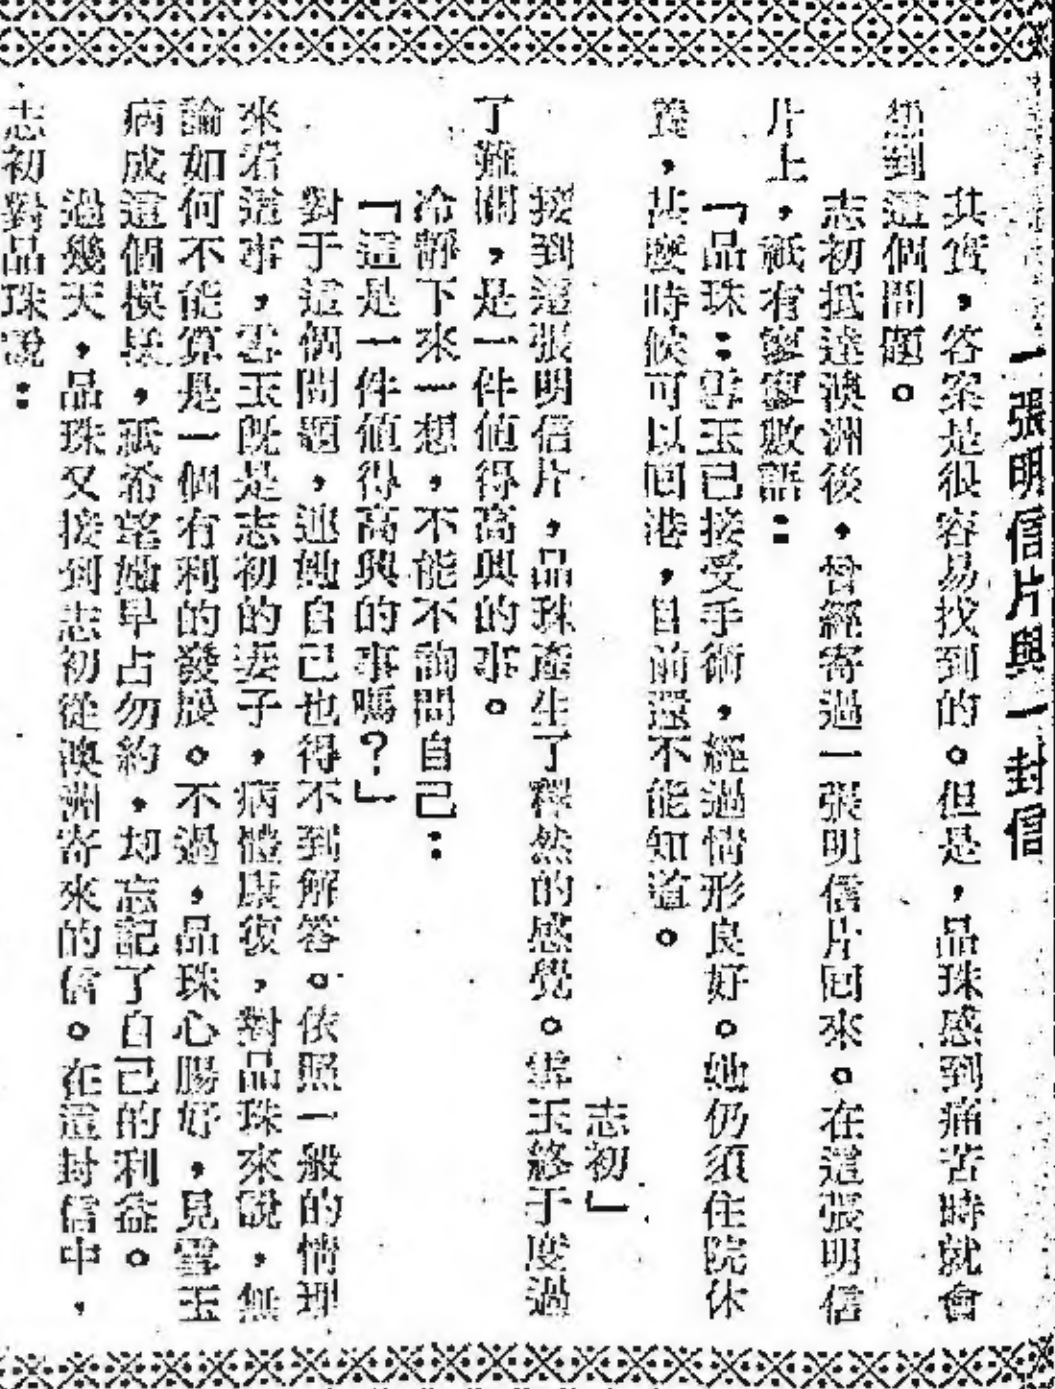 一張明信片與一封信
其實，答案是很容易找到的。但是，品珠感到痛苦時就會
想到這個問題。
志初抵達澳洲後，曾經寄過一張明信片回來。在這張明信
片上，祇有寥寥數語：
「品珠：雪玉已接受手術，經過情形良好。她仍須住院休
養，甚麼時候可以回港，目前還不能知道。
志初」
接到這張明信片，品珠產生了釋然的感覺。雪玉終于度過
了難關，是一件值得高興的事。
冷靜下來一想，不能不詢問自己：
「這是一件值得高興的事嗎？」
對于這個問題，連她自己也得不到解答。依照一般的情理
來看這事，雪玉既是志初的妻子，病體康復，對品珠來說，無
論如何不能算是一個有利的發展。不過，品珠心腸好，見雪玉
病成這個模樣，祇希望她早占勿約，却忘記了自己的利益。
過幾天，品珠又接到志初從澳洲寄來的信。在這封信中，
志初對品珠說：